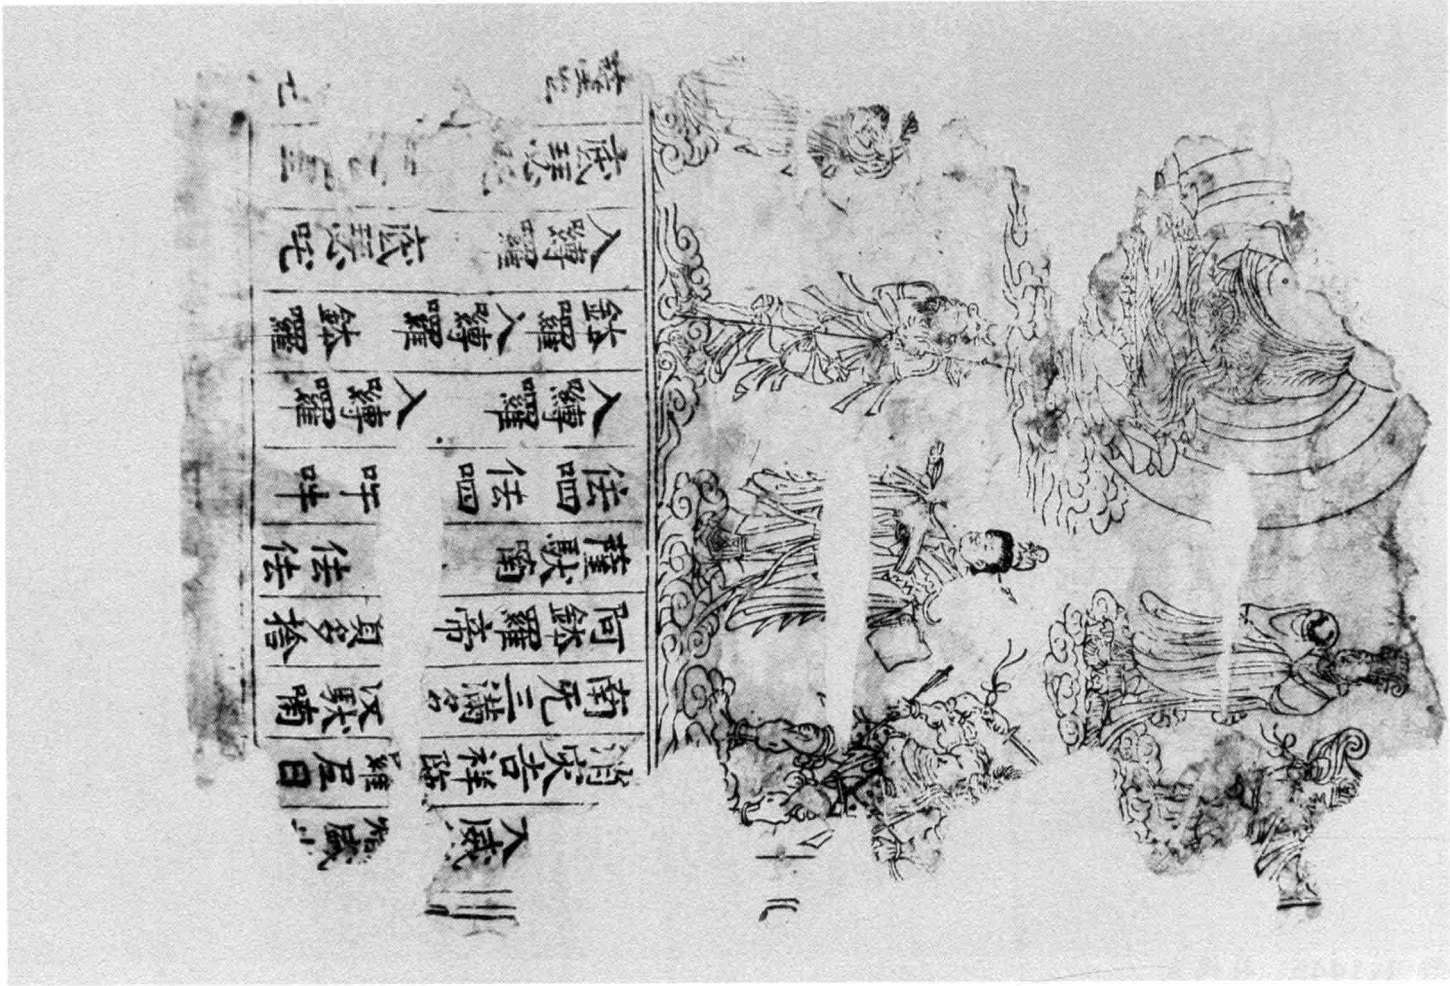 大威
消災吉祥陀羅尼曰
南无三滿多沒馱喃
阿鉢羅帝賀多捨
薩馱喃佉佉
佉呬佉呬吽吽
入嚩囉入嚩囉
鉢囉入嚩囉鉢囉
入嚩囉底瑟吒
底瑟